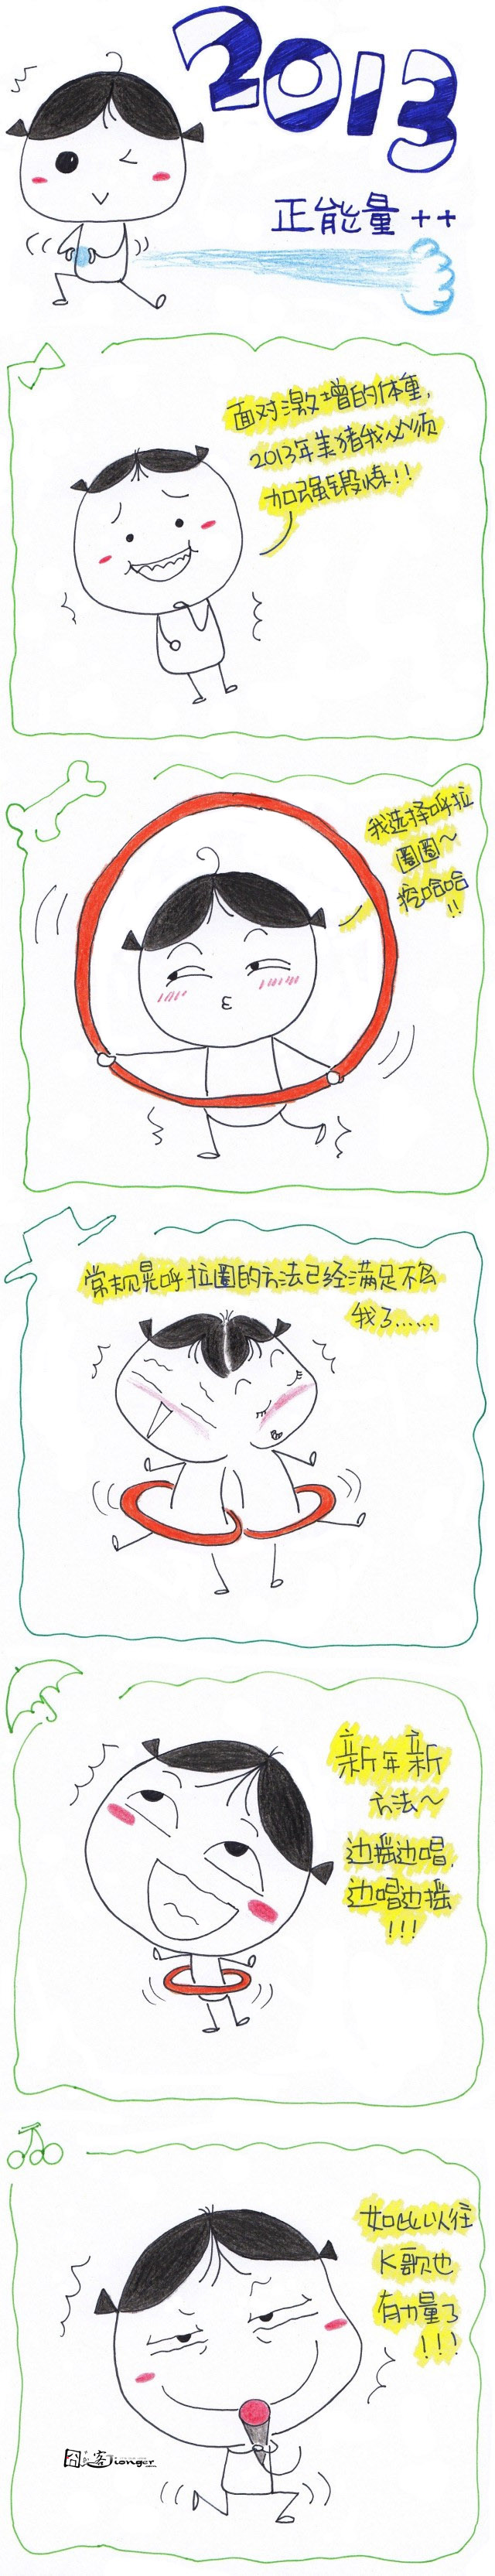 2013
正能量++
面对激增的体重,
2013年美猪我必须
加强锻炼!!
我选择呼拉
圈圈~
挖哈哈
!!
常规晃呼拉圈的方法已经满足不了
我了......
新年新
方法~
边摇边唱,
边唱边摇
!!!
如此以往
K歌也
有力量了
!!!
囧客Jionger